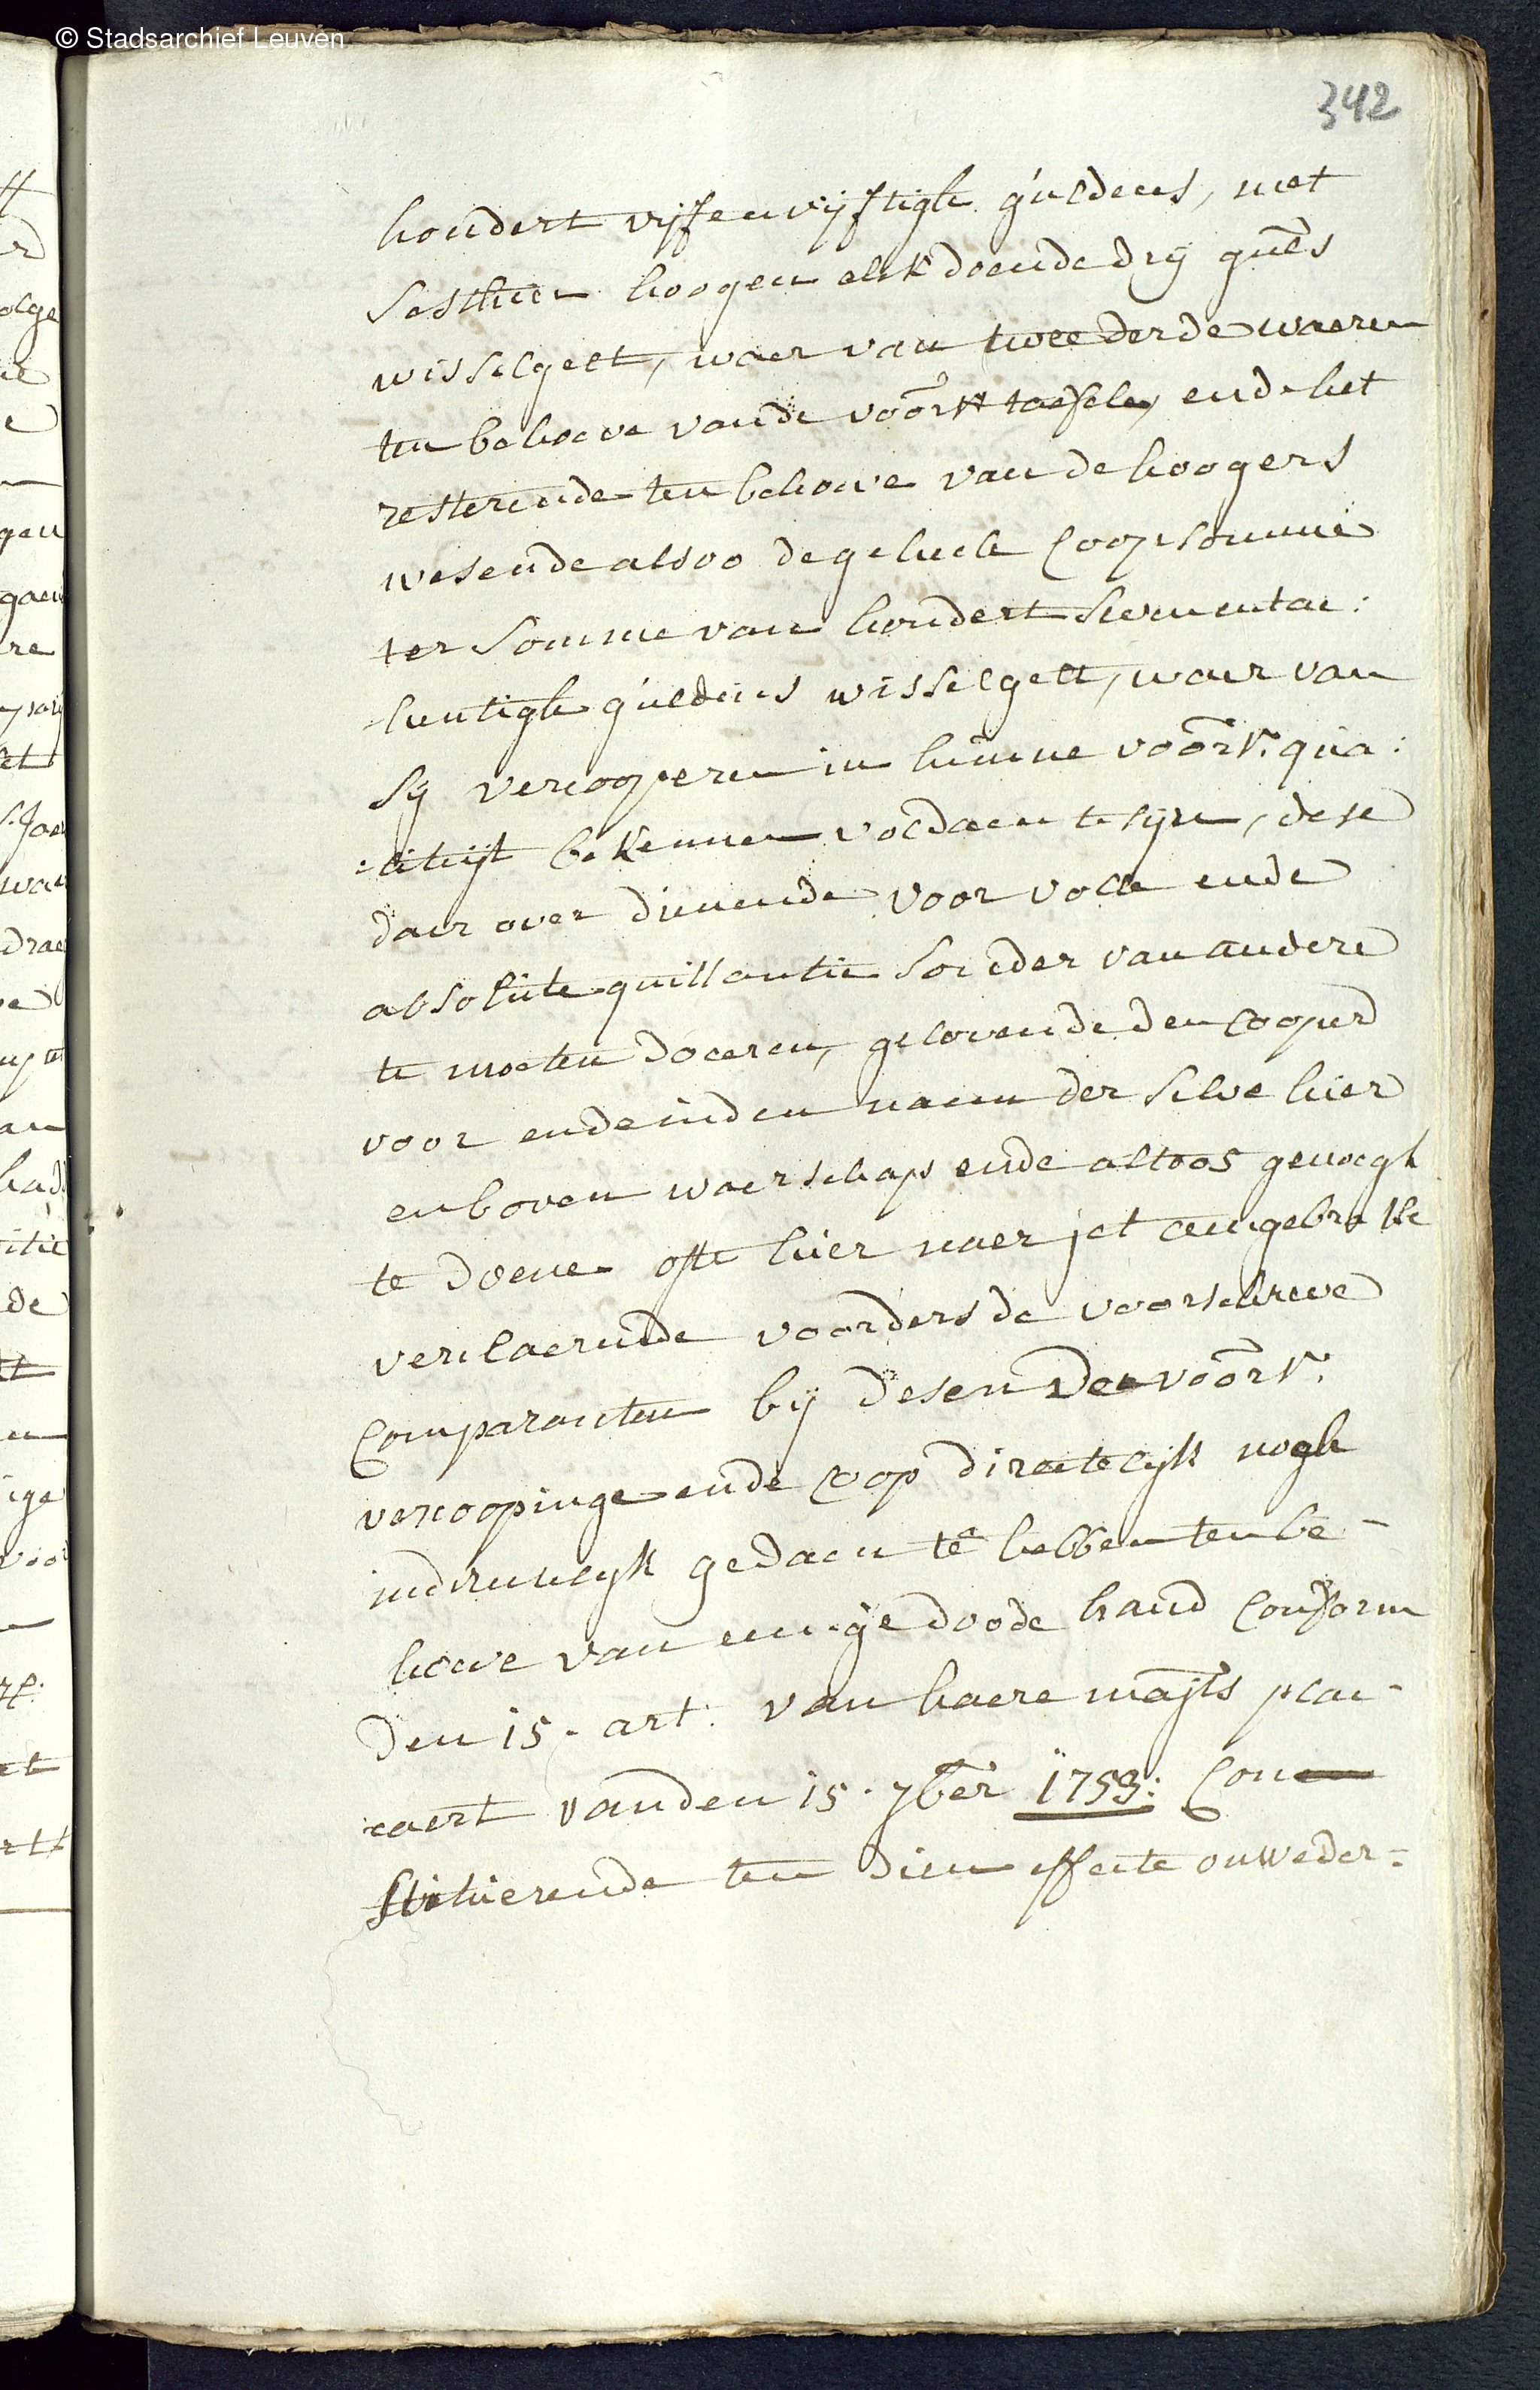 © Stadsarchief Leuven
342
hondert vijfenvijftigh guldens, met
sesthien hoogen elck doende drij guls
wisselgelt, waer van twee derde waeren
ten behoeve vande voorst taefele, ende het
resterende ten behoeve van de hoogers
wesende alsoo de geheele coopsomme
ter somme van hondert sevenentae:
:lentigh guldens wisselgelt, waer van
sij vercoopers in hunne voors. qua:
:litijt bekennen voldaen te sijn, dese
daer over dienende voor volle ende
absolute quittantie sonder van andere
te moeten doceren, gelovende den cooper
voor ende inden naem der selve hier
en boven waerschap ende altoos genoegh
te doene oft hier naer jet aengebrake
verclaerende voorders de voorschreve
comparanten bij desen de voors.
vercoopinge ende coop directelijk nogh
indirectelijk gedaen te hebben ten be-
hoeve van eenige doode hand conform
den 15. art. van haere majts plac-
caert vanden 15. 7ber 1753: con
stituerende ten dien effecte onweder=